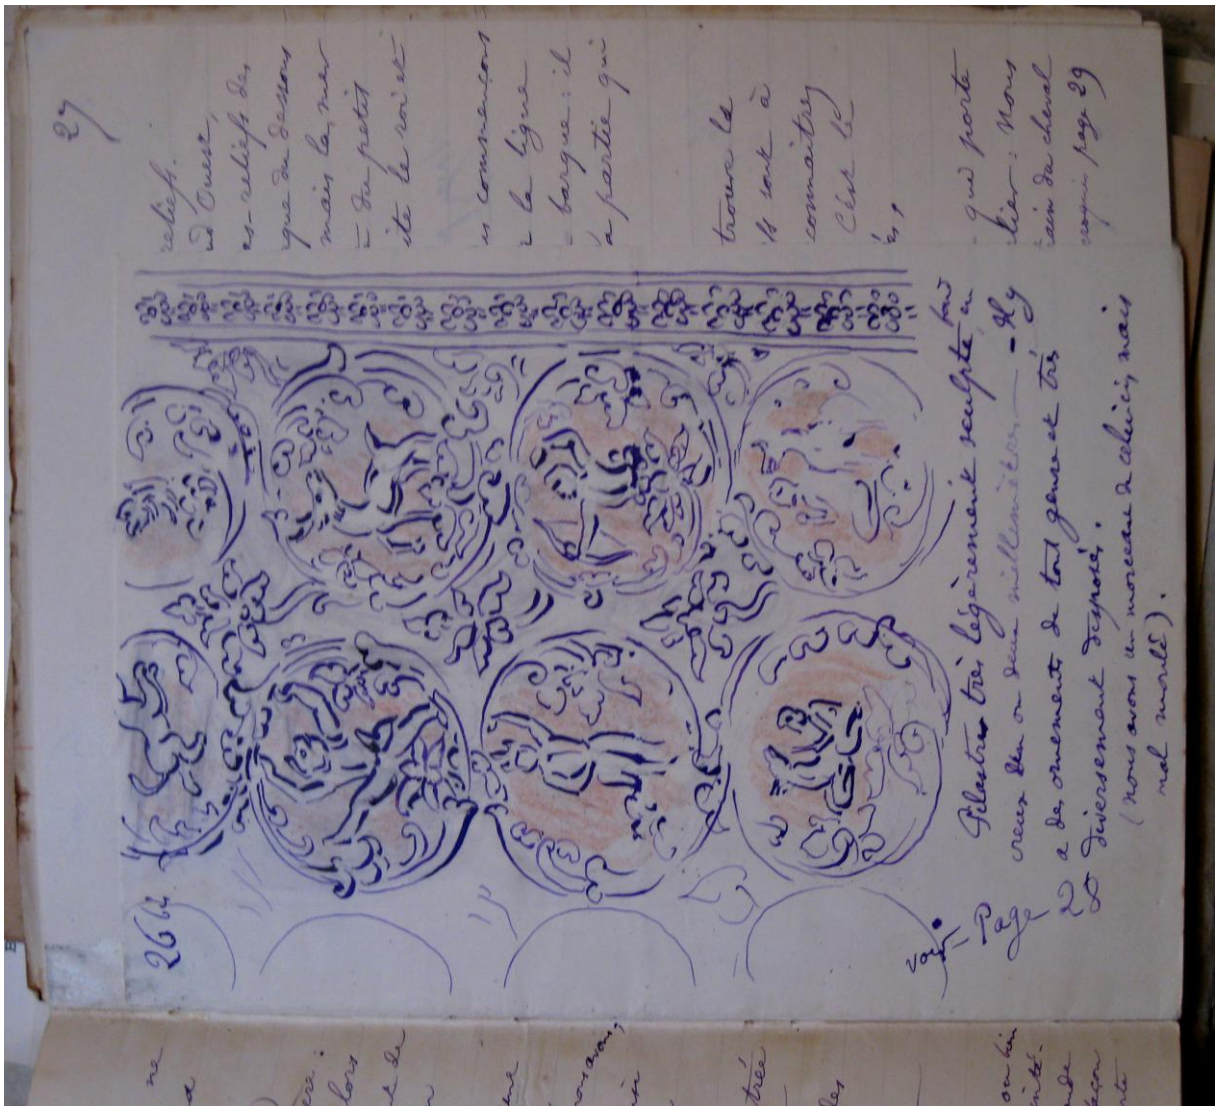 27
reliefs.
d Ouest,
es-reliefs de
que du dessous
mais la mer
du petit
ite le roi et
s commençons
la ligne
barque : il
a partie qui
trouve le
ils sont à
connaitre
C'est là
és,
qui porte
lier : Nous
main du cheval
croquis page 29
26 bis
Pilastres très légèrement sculptés, tout en
creux d'un ou deux millimètres. - Il y
a des ornements de tout genre et très
diversement disposés.
(nous avons un morceau de celui-ci, mais
mal moulé).
voir
Page
28
ne
lors
de
nous avons,
trée
les
ou bien
façon